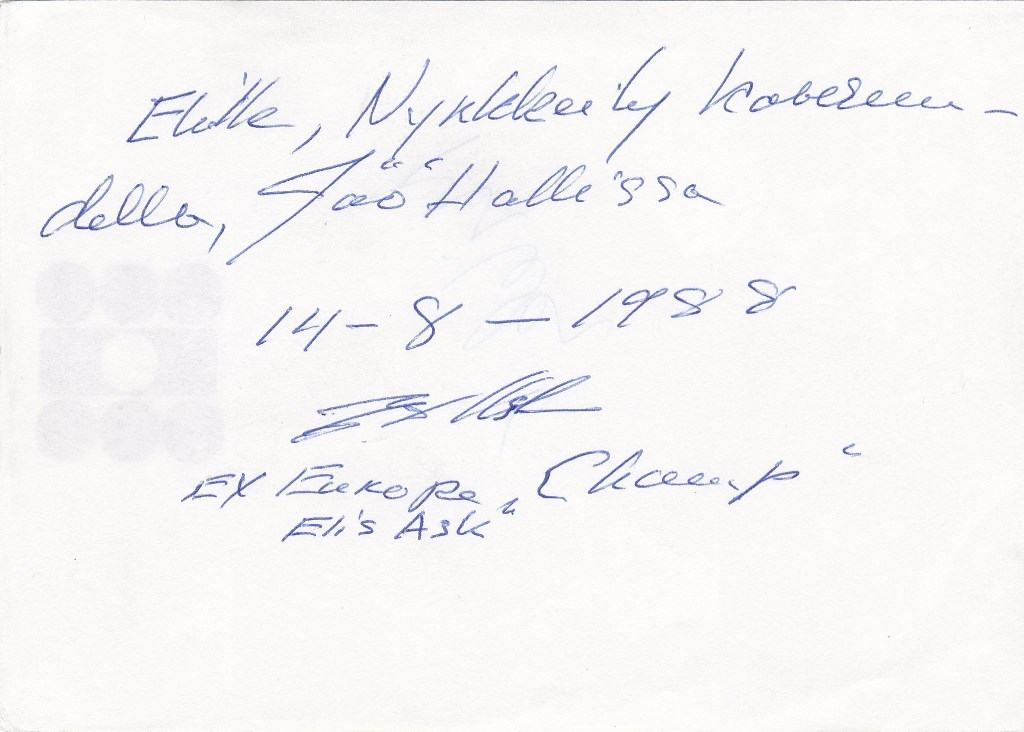 Nykkkeily Kavereu-
della, "Jää" Hallissa
14-8-1988
EX Europa "Champ"
Elis Ask"